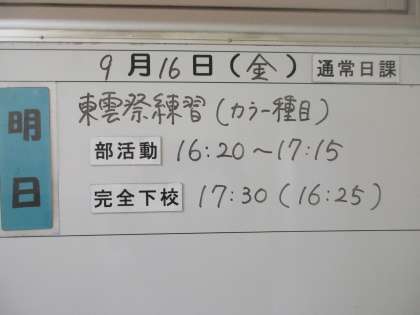 9月16日(金) 通常日課
明日
東雲祭練習(カラー種目)
部活動 16:20~17:15
完全下校 17:30(16:25)